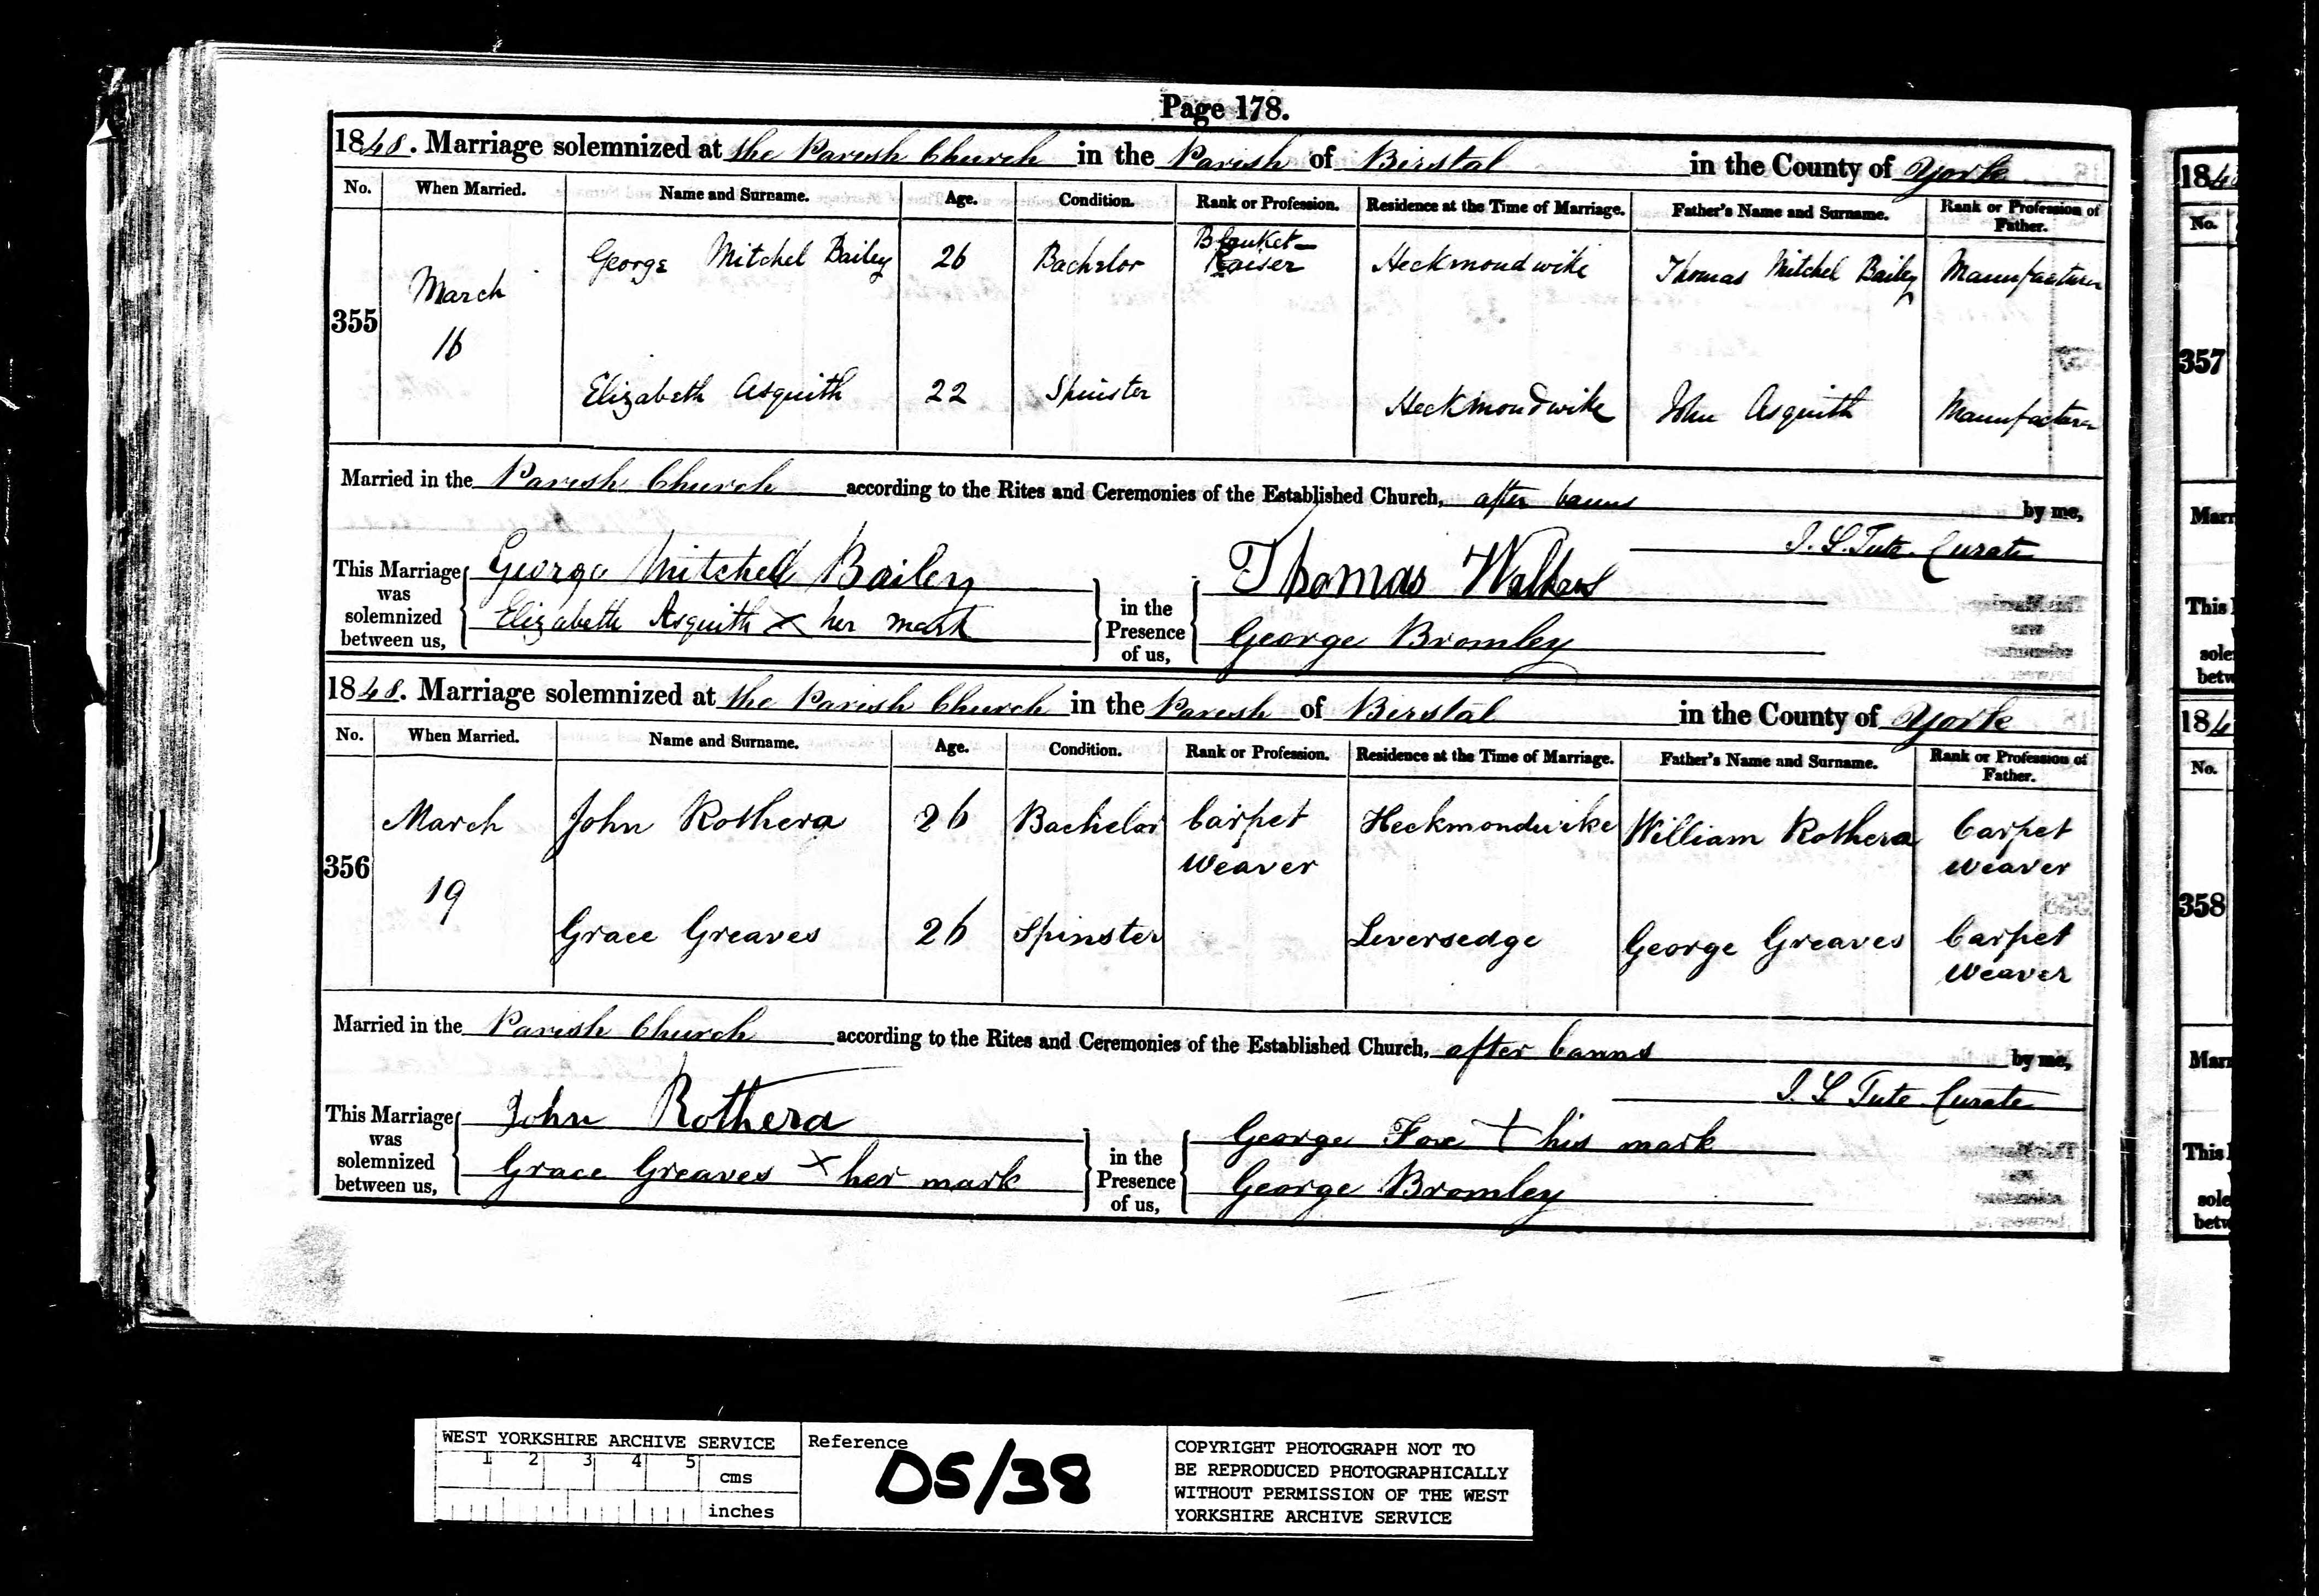 Page 178.
1848. Marriage solemnized at the Parish Church in the Parish of Birstal in the County of York
No. When Married. Name and Surname. Age. Condition. Rank or Profession. Residence at the Time of Marriage. Father's Name and Surname. Rank or Profession of Father.
355 March 16 George Mitchel Bailey 26 Bachelor Blanket Raiser Heckmondwike Thomas Mitchel Bailey Manufacturer
Elizabeth Asquith 22 Spinster Heckmondwike John Asquith Manufacturer
Married in the Parish Church according to the Rites and Ceremonies of the Established Church, after banns by me,
J. S. Tute Curate
This Marriage was solemnized between us, George Mitchell Bailey
Elizabeth Asquith x her mark
in the Presence of us, Thomas
George Bromley
1848. Marriage solemnized at the Parish Church in the Parish of Birstal in the County of York
No. When Married. Name and Surname. Age. Condition. Rank or Profession. Residence at the Time of Marriage. Father's Name and Surname. Rank or Profession of Father.
356 March 19 John Rothera 26 Bachelor Carpet Weaver Heckmondwike William Rothera Carpet Weaver
Grace Greaves 26 Spinster Leversedge George Greaves Carpet Weaver
Married in the Parish Church according to the Rites and Ceremonies of the Established Church, after banns by me,
J. S. Tute Curate
This Marriage was solemnized between us, John Rothera
Grace Greaves x her mark
in the Presence of us, George Fox + his mark
George Bromley
184
No.
357
Marr
This
sole
betw
184
No.
358
Marr
This
sole
betw
WEST YORKSHIRE ARCHIVE SERVICE
1 2 3 4 5 cms
inches
Reference
D5/38
COPYRIGHT PHOTOGRAPH NOT TO
BE REPRODUCED PHOTOGRAPHICALLY
WITHOUT PERMISSION OF THE WEST
YORKSHIRE ARCHIVE SERVICE